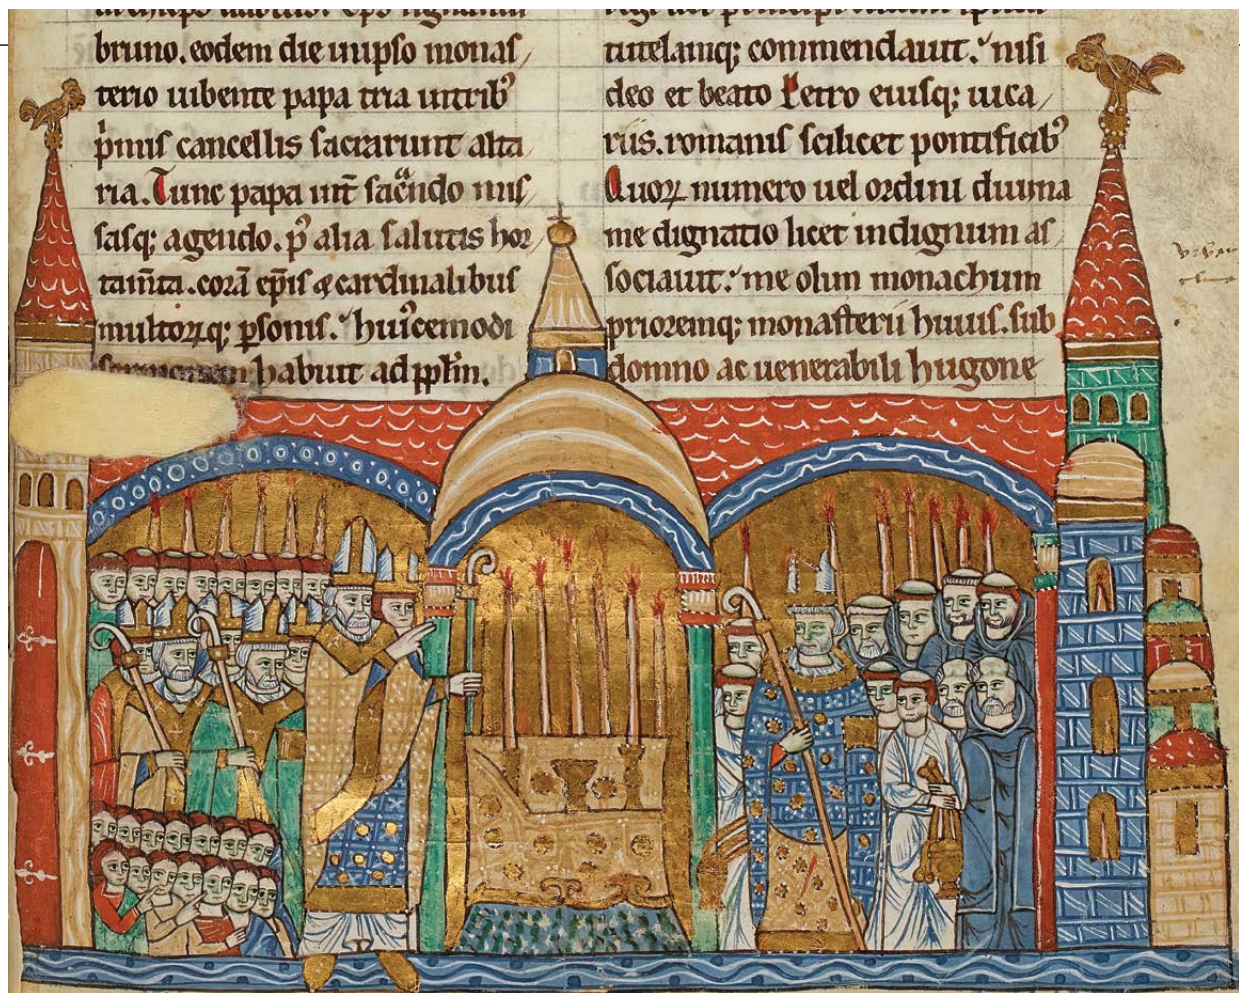 bruno. eodem die in ipso monas/
terio iubente papa tria in tribꝰ
p̄mis cancellis sacrarunt alta
ria. Tunc papa int̄ sac̄ndo mis/
sasq; agendo. pꝰ alia salutis hor/
tam̄ta. corā ep̄is & cardinalibus
multoꝝq; p̄sonis. huicemodi
habuit ad pplm̄.
tutelamq; commendauit. nisi
deo et beato Petro eiusq; uica/
riis. romanis scilicet pontificibꝰ
Quoꝝ numero uel ordini diuina
me dignatio licet indignum as/
sociauit. me olim monachum
prioremq; monasterii huius. sub
domno ac uenerabili hugone